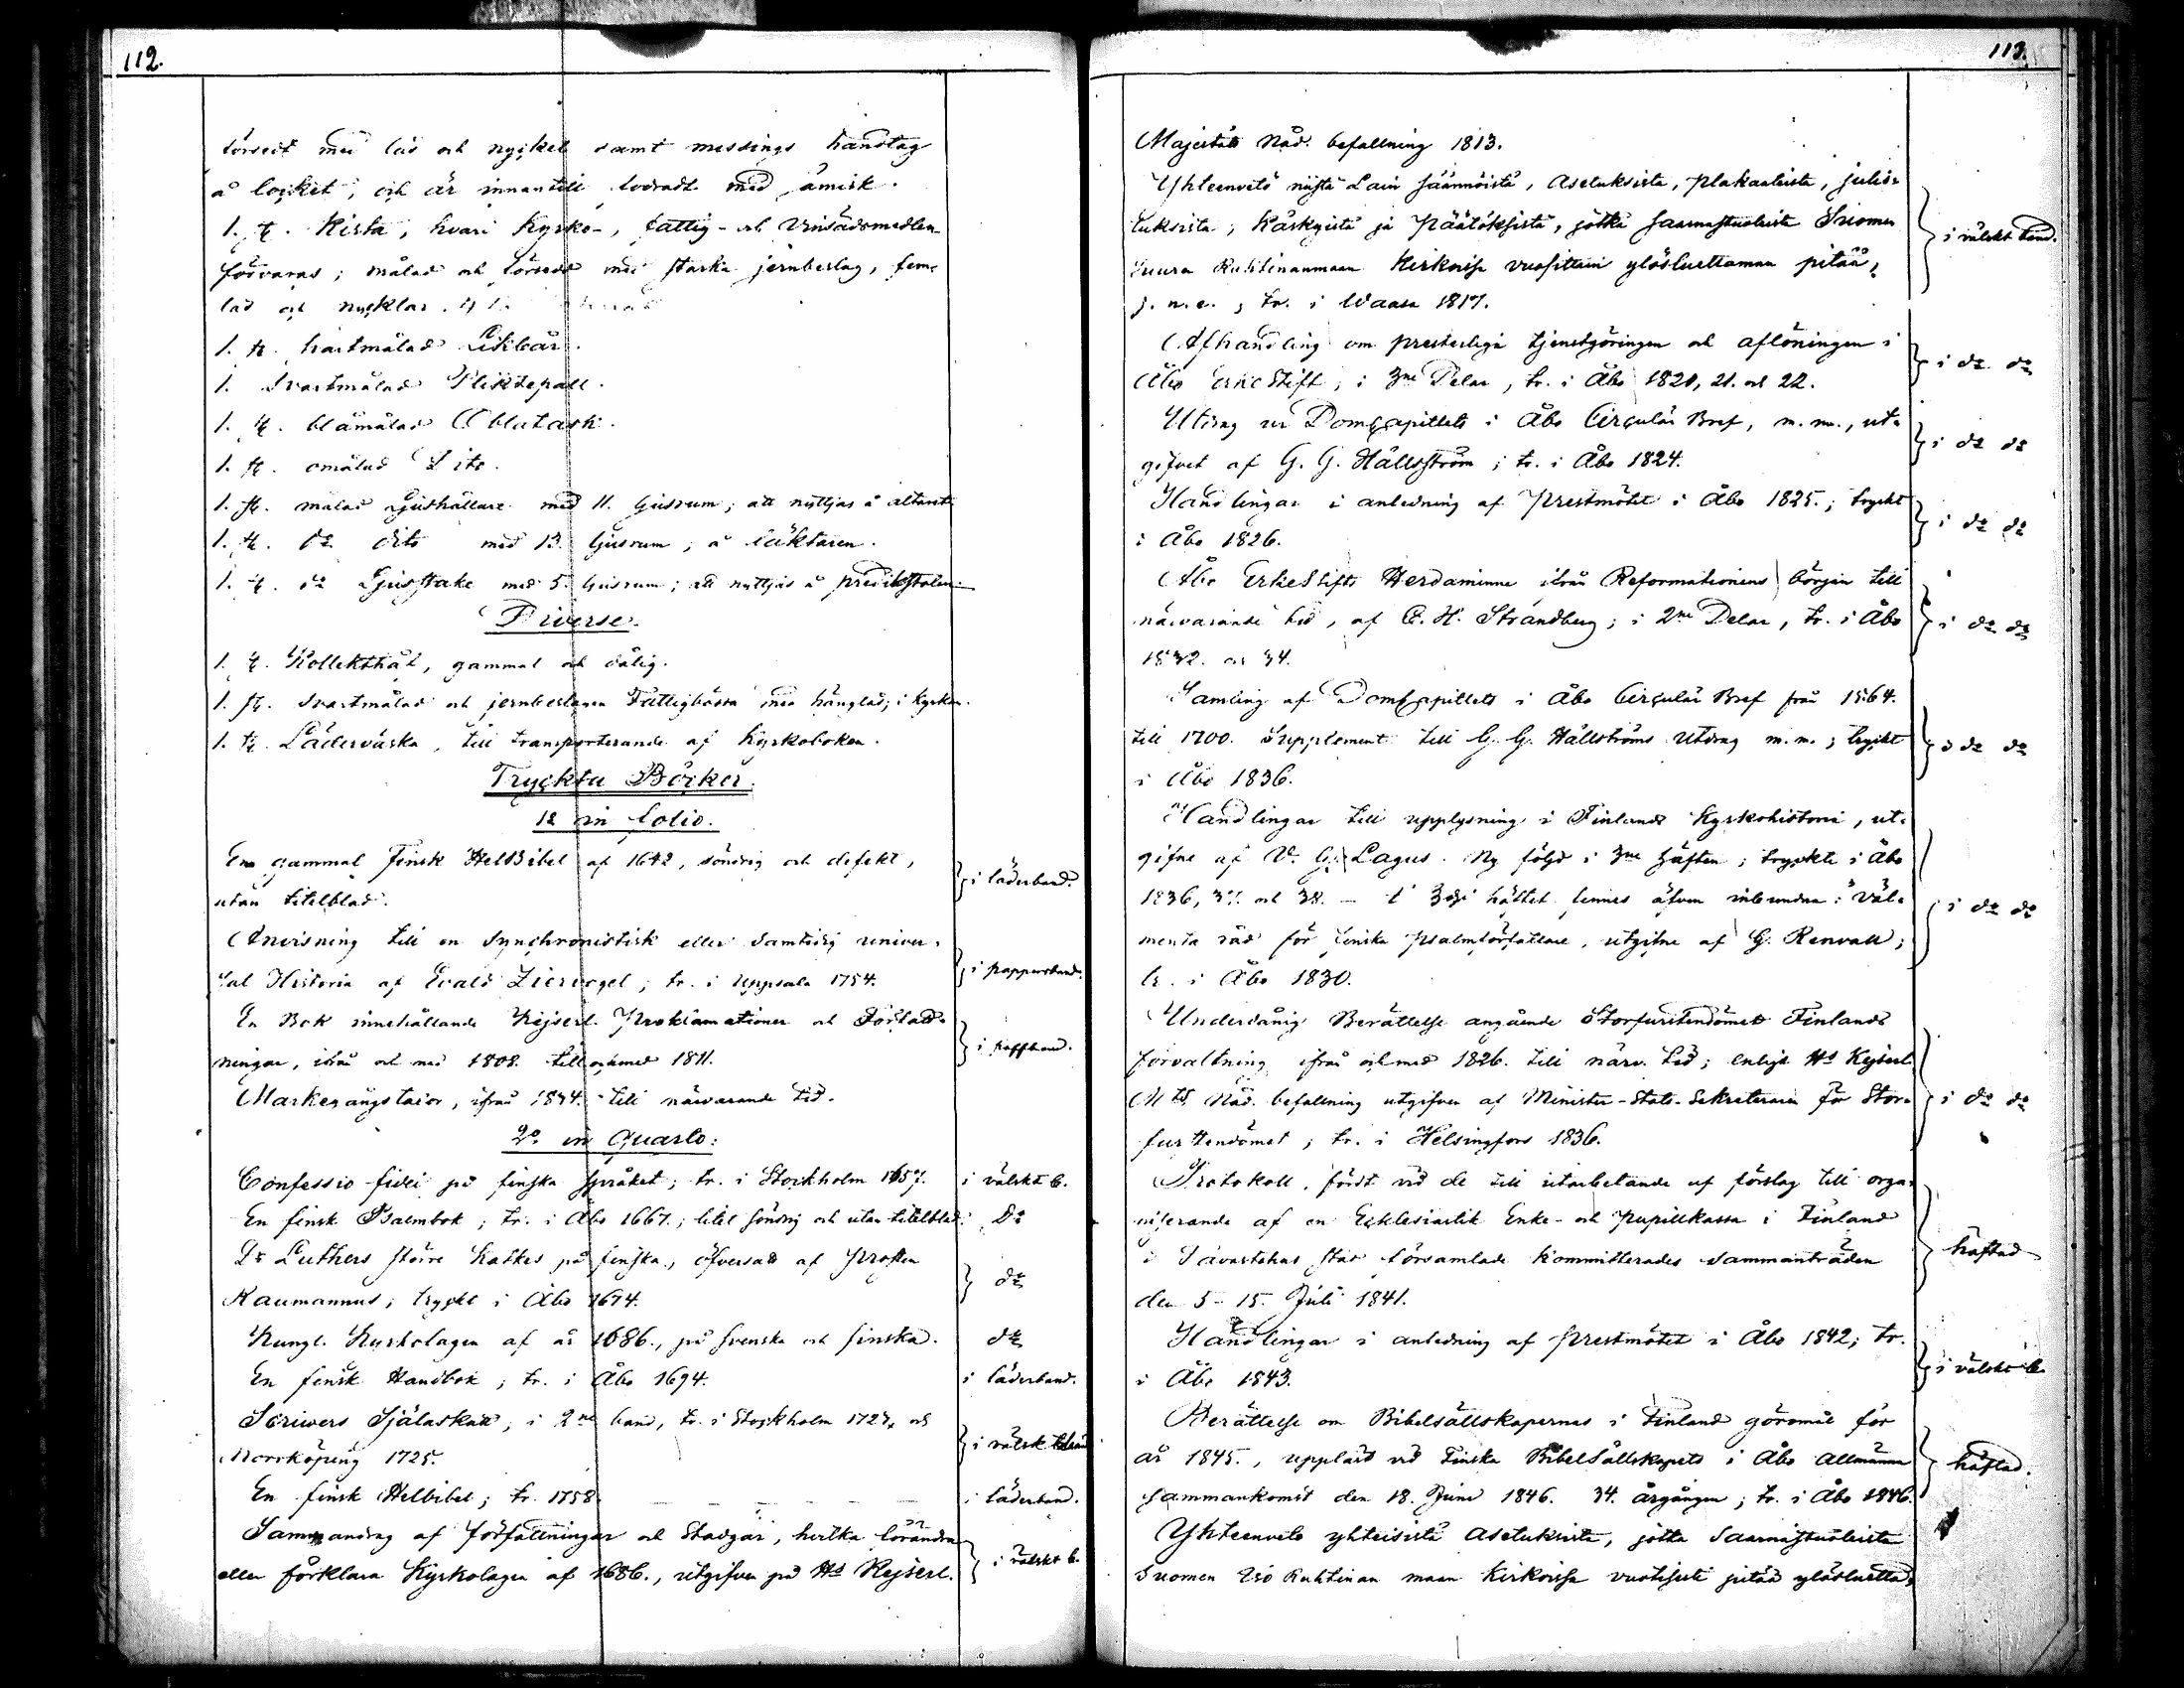 112.
försedt med lås och nyckel samt messings handtag
å locket, och är innantill fodradt med
1. st. Kista, hvari Kyrko-, fattig- och medlen
förvaras; målad och försedd med starka jernbeslag, fem
lås och nycklar.
1. st. svartmålad Likbår.
1. Svartmålad Pliktepall.
1. st. blåmålad Oblatask.
1. st. omålad Dito.
1. st. målad Ljushållare med 11. ljusrum; att nyttjas å altaret
1. st. do dito med 13. ljusrum, å läktaren.
1. st. do Ljusstake med 5. ljusrum; att nyttjas å predikstolen.
Diverse.
1. st. Kollekthåf, gammal och dålig.
1. st. Svartmålad och jernbeslagen Fattigbössa med hänglås; i kyrkan.
1. st. Läderväska, till transporterande af Kyrkoboken.
Tryckta Böcker.
1o in folio.
En gammal Finsk HelBibel af 1642, söndrig och defekt, } i läderband.
utan titelblad.
Anvisning till en Synchronistisk eller Samtidig univer-
sal Historia af Evald Ziervogel; tr. i Uppsala 1754. } i pappersband.
En Bok innehållande Kejserl. Proklamationer och Författ-
ningar, ifrån och med 1808. till och med 1811. } i pappband.
Markegångstaxor, ifrån 1834. till närvarande tid.
2o. in Quarto:
Confessio fidei på finska språket; tr. i Stockholm 1657. i välskt b.
En finsk Psalmbok; tr. i Åbo 1667.; litet söndrig och utan titelblad. Do
Dr Luthers större Kathes på finska, öfversatt af Prosten } do
Raumannus; tryckt i Åbo 1674.
Kungl. Kyrkolagen af år 1686., på Svenska och finska. do
En finsk Handbok; tr. i Åbo 1694. i läderband.
Scrivers Själaskatt, i 2ne band, tr. i Stockholm 1723, och
Norrköping 1725. } i välsk
En finsk Helbibel; tr. 1758. i läderband.
Sammandrag af författningar och Stadgar, hvilka förändra
eller förklara Kyrkolagen af 1686., utgifven på Hs Kejserl. } i välskt b.
113.
Majestäts Nåd. befallning 1813.
Yhteenveto niistä Lain säännöistä, Asetuksista, plakaateista, julis-
tuksista, käskyistä ja Päätöksistä, jotka saarnastuoleista Suomen } i välskt band.
Suuren Ruhtinanmaan Kirkoissa vuosittain ylösluettaman pitää,
j. n. e.; tr. i Waasa 1817.
Afhandling om presterliga tjenstgöringen och aflöningen i } i do do
Åbo ErkeStift, i 3ne Delar, tr. i Åbo 1820, 21. och 22.
Utdrag ur DomCapitlets i Åbo Circulär Bref, m. m., ut- } i do do
gifvet af G. G. Hällström; tr. i Åbo 1824.
Handlingar i anledning af Prestmötet i Åbo 1825.; tryckt } i do do
i Åbo 1826.
Åbo ErkeStifts Herdaminne ifrån Reformationens början till
närvarande tid, af C. H. Strandberg; i 2ne Delar, tr. i Åbo } i do do
1832. och 34.
Samling af DomCapitlets i Åbo Circulär Bref från 1564.
till 1700. Supplement till G. G. Hällströms Utdrag m. m.; tryckt } i do do
i Åbo 1836.
Handlingar till upplysning i Finlands Kyrkohistoria, ut-
gifne af W. G. Lagus. Ny följd i 3ne häften; tryckte i Åbo
1836, 37. och 38. – I 3dje häftet finnes äfven inbundna: Väl- } i do do
menta råd för finska psalmförfattare, utgifne af G. Renvall;
tr. i Åbo 1830.
Underdånig Berättelse angående Storfurstendömets Finlands
förvaltning ifrån och med 1826. till närv. tid; enligt Hs Kejserl.
M:ts Nåd. befallning utgifven af Minister-Stats-Sekreteraren för Stor- } i do do
furstendömet; tr. i Helsingfors 1836.
Protokoll, fördt vid de till utarbetande af förslag till orga-
niserande af en Ecklesiastik Enke- och Pupillkassa i Finland
i Tavastehus stad församlade Kommitterades sammanträden } häftad
den 5–15. Juli 1841.
Handlingar i anledning af Prestmötet i Åbo 1842; tr.
i Åbo 1843. } i välskt b.
Berättelse om Bibelsällskapernas i Finland göromål för
år 1845., uppläst vid Finska BibelSällskapets i Åbo Allmänna } häftad.
sammankomst den 18. Juni 1846. 34. årgången; tr. i Åbo 1846.
Yhteenveto yhteisistä Asetuksista, jotka Saarnastuoleista
Suomen Iso Ruhtinan maan Kirkoissa vuotisesti pitää ylösluetta-